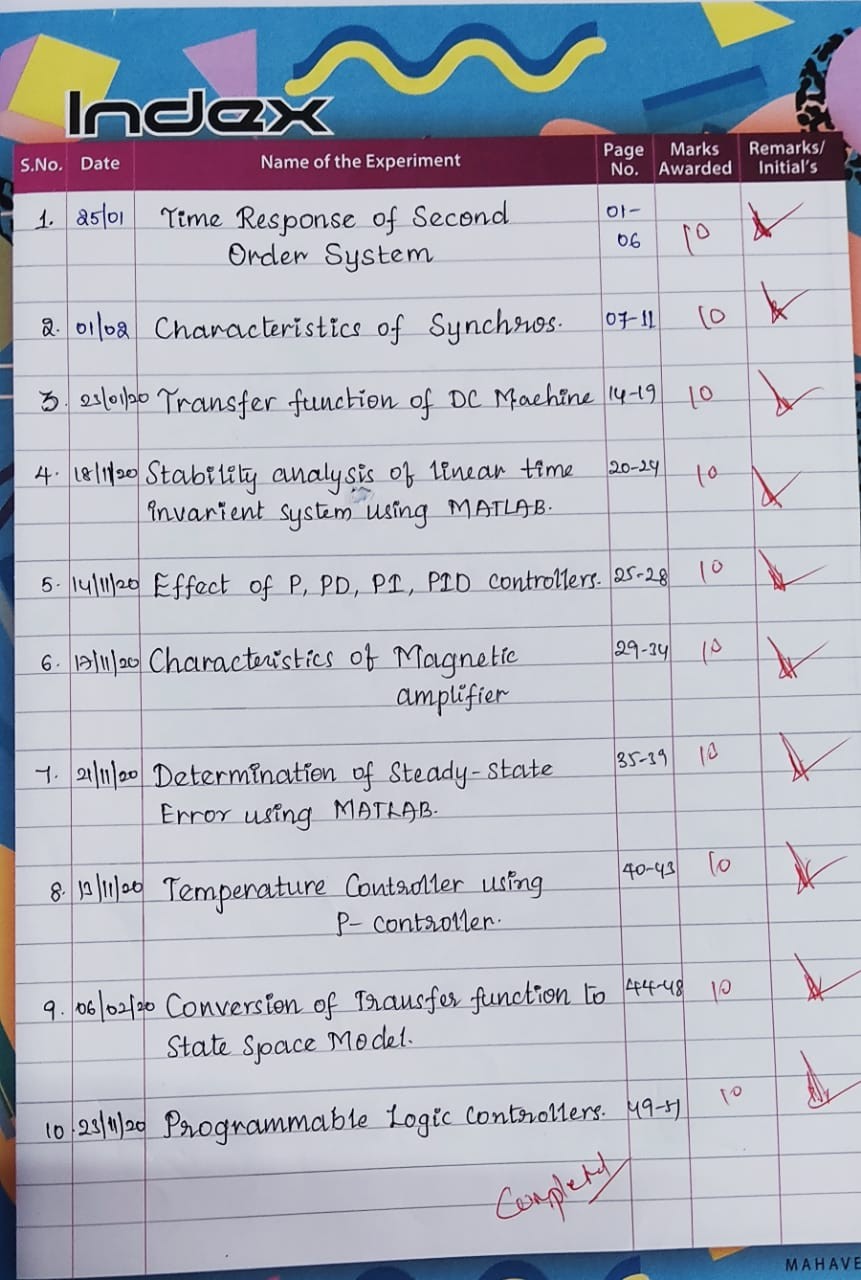 Index
S.No. Date Name of the Experiment Page No. Marks Awarded Remarks/ Initial's
1. 25/01 Time Response of Second 01-
Order System 06 10
2. 01/02 Characteristics of Synchros. 07-11 10
3. 23/01/20 Transfer function of DC Machine 14-19 10
4. 18/11/20 Stability analysis of linear time 20-24 10
invarient system using MATLAB.
5. 14/11/20 Effect of P, PD, PI, PID controllers. 25-28 10
6. 17/11/20 Characteristics of Magnetic 29-34 10
amplifier
7. 21/11/20 Determination of Steady-State 35-39 10
Error using MATLAB.
8. /11/20 Temperature Controller using 40-43 10
P- controller.
9. 06/02/20 Conversion of Transfer function to 44-48 10
State Space Model.
10. 23/11/20 Programmable Logic Controllers. 49-51 10
Completed
MAHAVE